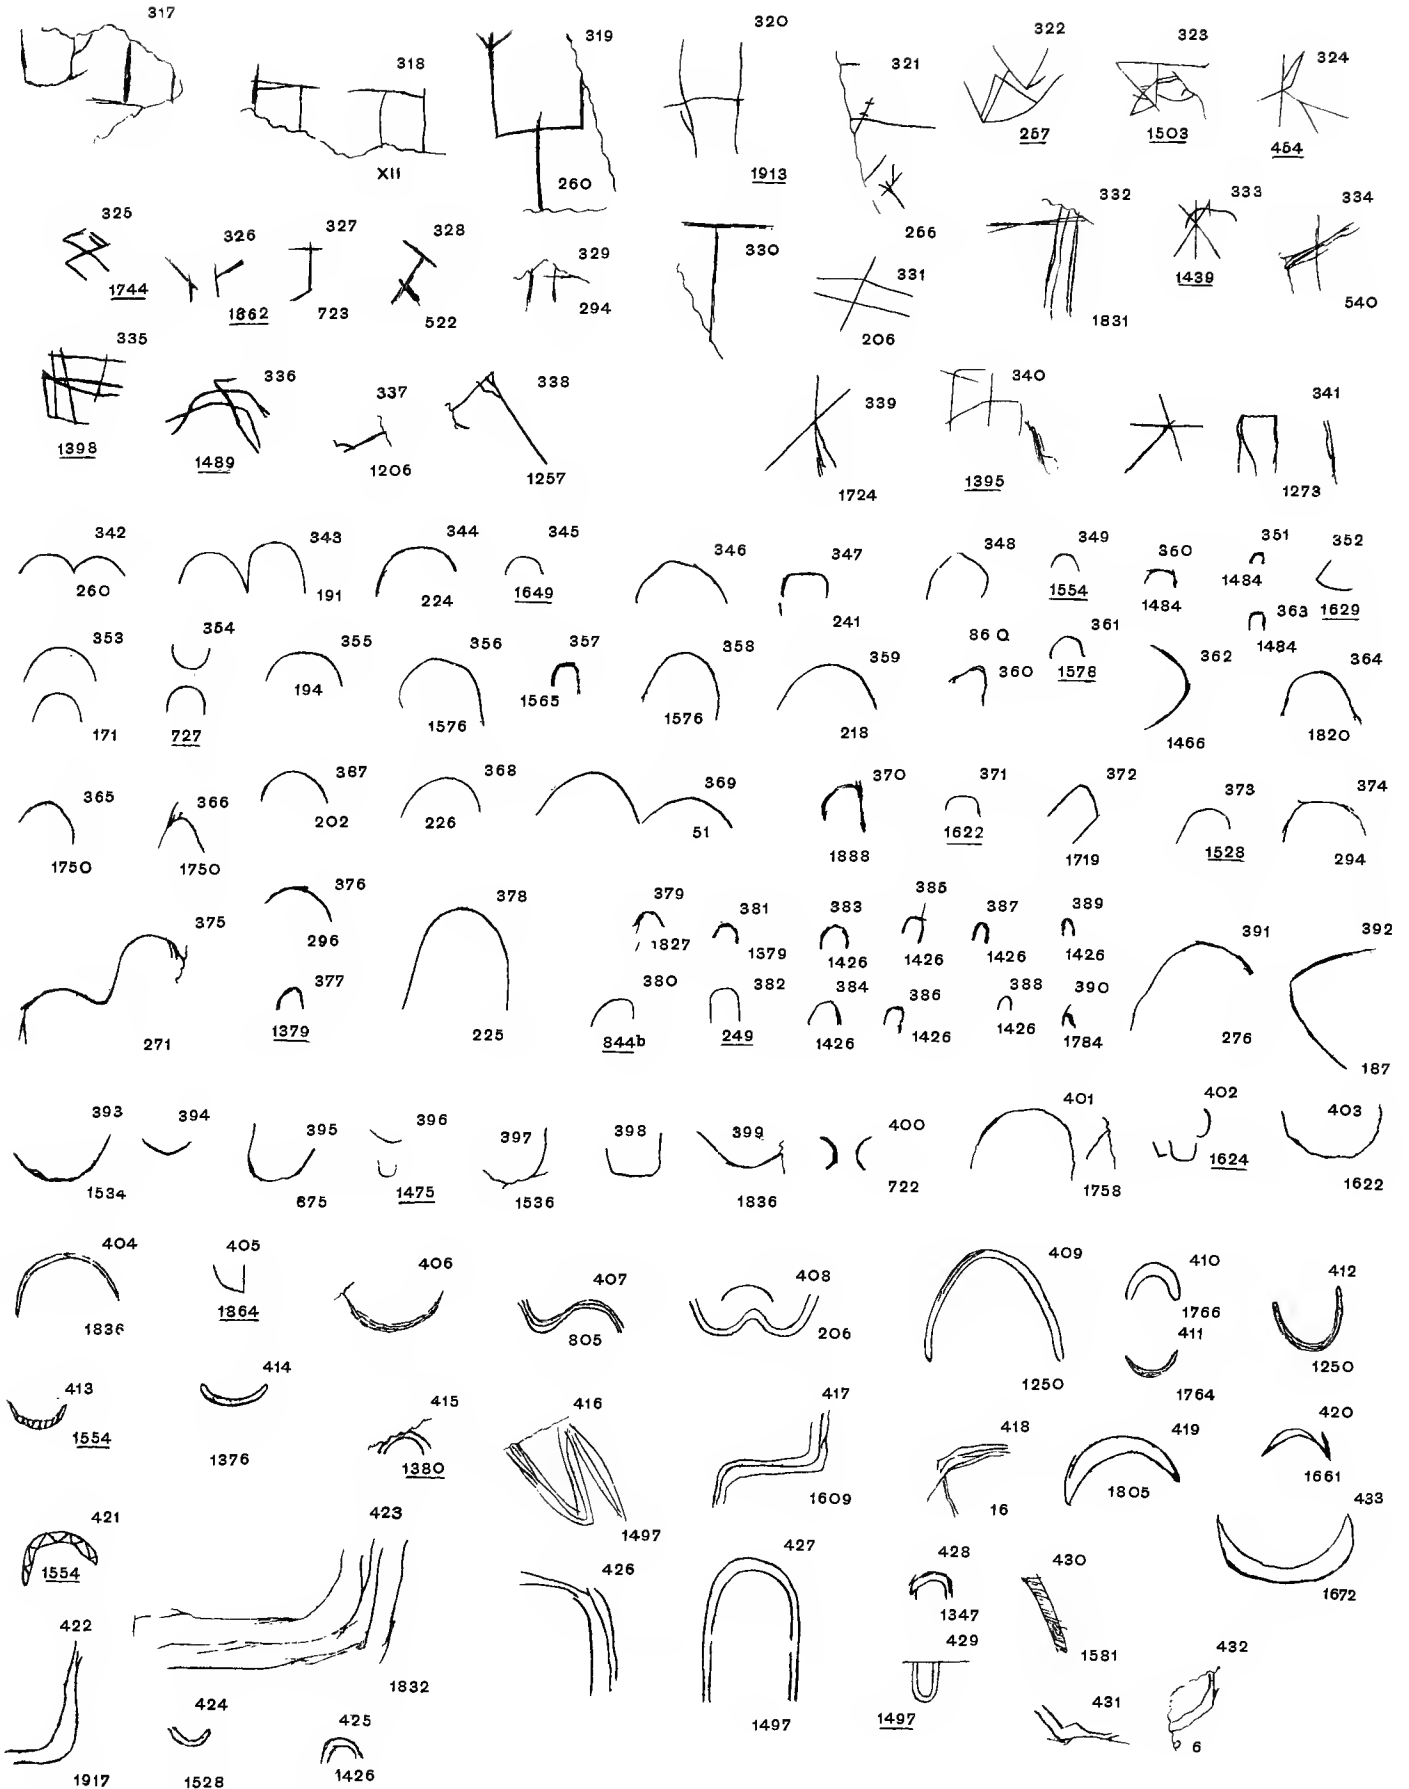 317
318
XII
319
260
320
1913
321
266
322
257
323
1503
324
454
325
1744
326
1862
327
723
328
522
329
294
330
331
206
332
1831
333
1439
334
540
335
1398
336
1489
337
1206
338
1257
339
1724
340
1395
341
1273
342
260
343
191
344
224
345
1649
346
347
241
348
349
1554
360
1484
351
1484
352
1629
353
171
354
727
355
194
356
1576
357
1565
358
1576
359
218
86 Q
360
361
1578
363
1484
362
1466
364
1820
365
1750
366
1750
367
202
368
226
369
51
370
1888
371
1622
372
1719
373
1528
374
294
375
271
376
296
377
1379
378
225
379
1827
380
844b
381
1379
382
249
383
1426
384
1426
385
1426
386
1426
387
1426
388
1426
389
1426
390
1784
391
276
392
187
393
1534
394
395
675
396
1475
397
1536
398
399
1836
400
722
401
1758
402
1624
403
1622
404
1836
405
1864
406
407
805
408
206
409
1250
410
1766
411
1764
412
1250
413
1554
414
1376
415
1380
416
1497
417
1609
418
16
419
1805
420
1661
421
1554
422
1917
423
1832
424
1528
425
1426
426
427
1497
428
1347
429
1497
430
1581
431
432
6
433
1672